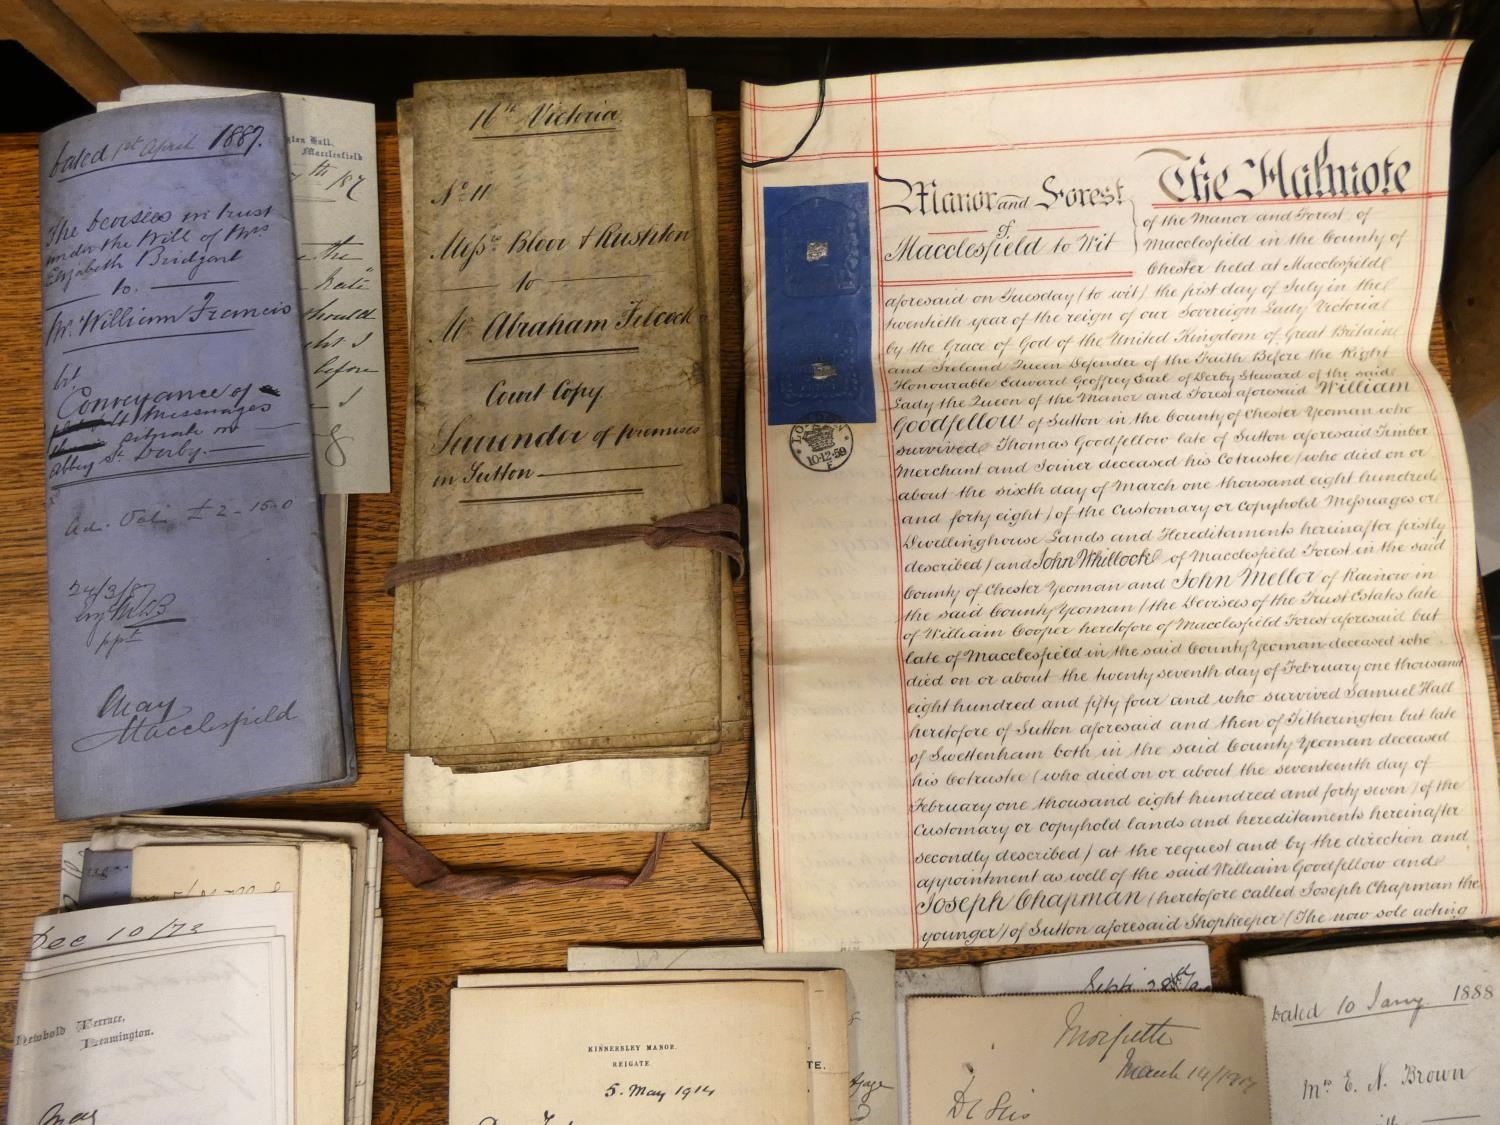 Dated 1st April 1887.
The Devisees in trust
under the Will of Mrs
Elizabeth Bridgart
to
Mr. William Francis
Conveyance of
messuages
situate in
Abbey St. Derby.
Ad. Val. £2-15-0
24/3/87
ppt
May
Macclesfield
gton Hall,
Macclesfield
the
should
before
16th Victoria
No. 11
Messrs Bloor & Rushton
to
Mr Abraham Jelcock
Court Copy
Surrender of premises
in Sutton
Manor and Forest
of
Macclesfield to Wit
LONDON
10·12·59
F
The Halmote
of the Manor and Forest of
Macclesfield in the County of
Chester held at Macclesfield
aforesaid on Tuesday (to wit) the first day of July in the
twentieth year of the reign of our Sovereign Lady Victoria
by the Grace of God of the United Kingdom of Great Britain
and Ireland Queen Defender of the Faith Before the Right
Honourable Edward Geoffrey Earl of Derby Steward of the said
Lady the Queen of the Manor and Forest aforesaid William
Goodfellow of Sutton in the County of Chester Yeoman who
survived Thomas Goodfellow late of Sutton aforesaid Timber
Merchant and Joiner deceased his Cotrustee (who died on or
about the sixth day of March one thousand eight hundred
and forty eight) of the Customary or Copyhold Messuages or
Dwellinghouse Lands and Hereditaments hereinafter firstly
described) and John Whillock of Macclesfield Forest in the said
County of Chester Yeoman and John Mellor of Rainow in
the said County Yeoman (the Devisees of the Trust Estates late
of William Cooper heretofore of Macclesfield Forest aforesaid but
late of Macclesfield in the said County Yeoman deceased who
died on or about the twenty seventh day of February one thousand
eight hundred and fifty four and who survived Samuel Hall
heretofore of Sutton aforesaid and then of Titherington but late
of Swettenham both in the said County Yeoman deceased
his Cotrustee (who died on or about the seventeenth day of
February one thousand eight hundred and forty seven) of the
Customary or copyhold lands and hereditaments hereinafter
secondly described) at the request and by the direction and
appointment as well of the said William Goodfellow and
Joseph Chapman (heretofore called Joseph Chapman the
younger) of Sutton aforesaid Shopkeeper (The now sole acting
Dec 10/72
Newbold Terrace,
Leamington.
May
KINNERSLEY MANOR.
REIGATE.
5. May 1914
TE.
March 14/1907
Dr Sirs
Dated 10 Jany. 1888
Mrs E. N. Brown